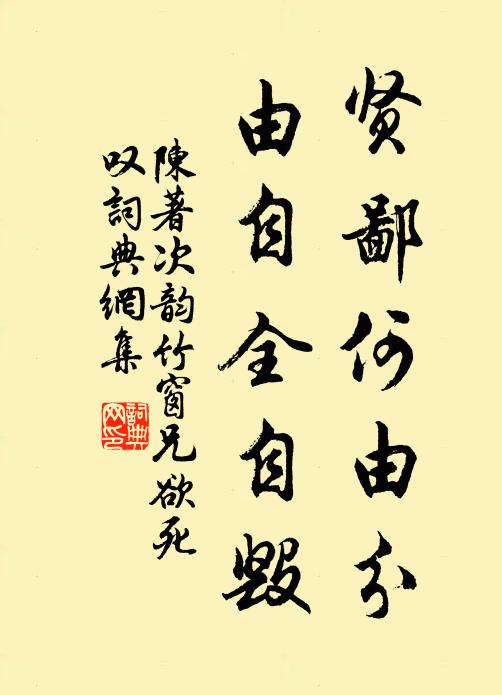 贤鄙何由分
由自全自毁
陳著次韵竹窗兄欲死
叹詞典網集
詞典网印